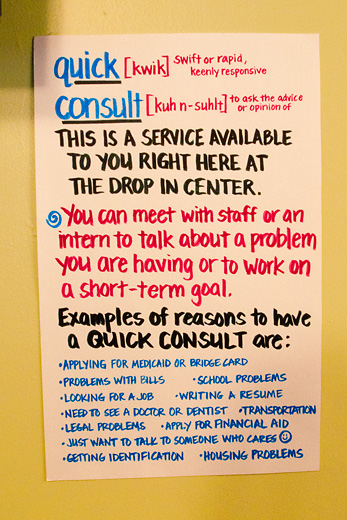 quick [kwik] swift or rapid, keenly responsive
consult [kuhn-suhlt] to ask the advice or opinion of
THIS IS A SERVICE AVAILABLE
TO YOU RIGHT HERE AT
THE DROP IN CENTER.
You can meet with staff or an
intern to talk about a problem
you are having or to work on
a short-term goal.
Examples of reasons to have
a QUICK CONSULT are:
•APPLYING FOR MEDICAID OR BRIDGE CARD
•PROBLEMS WITH BILLS •SCHOOL PROBLEMS
•LOOKING FOR A JOB •WRITING A RESUME
•NEED TO SEE A DOCTOR OR DENTIST •TRANSPORTATION
•LEGAL PROBLEMS •APPLY FOR FINANCIAL AID
•JUST WANT TO TALK TO SOMEONE WHO CARES ☺
•GETTING IDENTIFICATION •HOUSING PROBLEMS